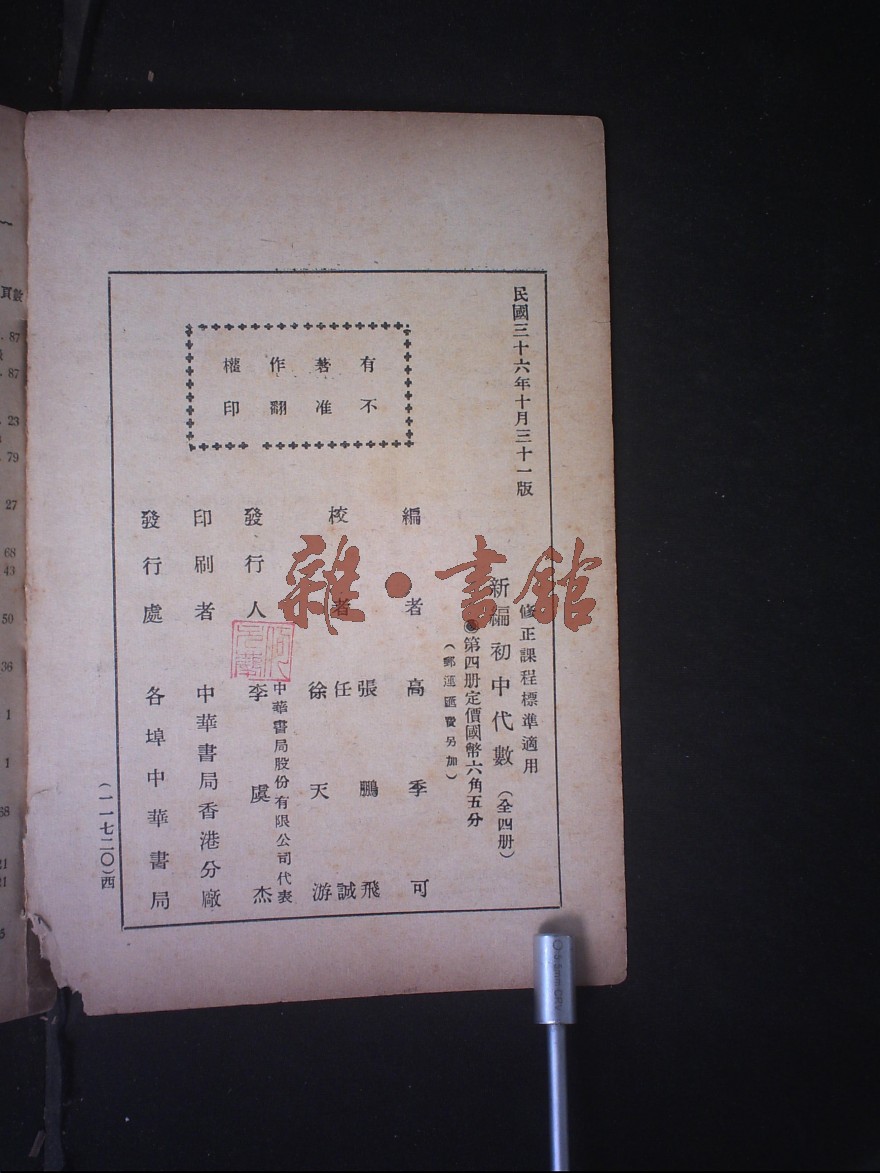 民國三十六年十月三十一版
修正課程標準適用
新編初中代數（全四册）
第四册定價國幣六角五分
（郵運匯費另加）
有著作權
不准翻印
編者 高季可
校者 張鵬飛
任誠
徐天游
發行人 李虞杰
中華書局股份有限公司代表
印刷者 中華書局香港分廠
發行處 各埠中華書局
（一一七二〇）西
雜·書館
頁數
87
87
23
79
27
68
43
50
36
1
1
68
21
21
5